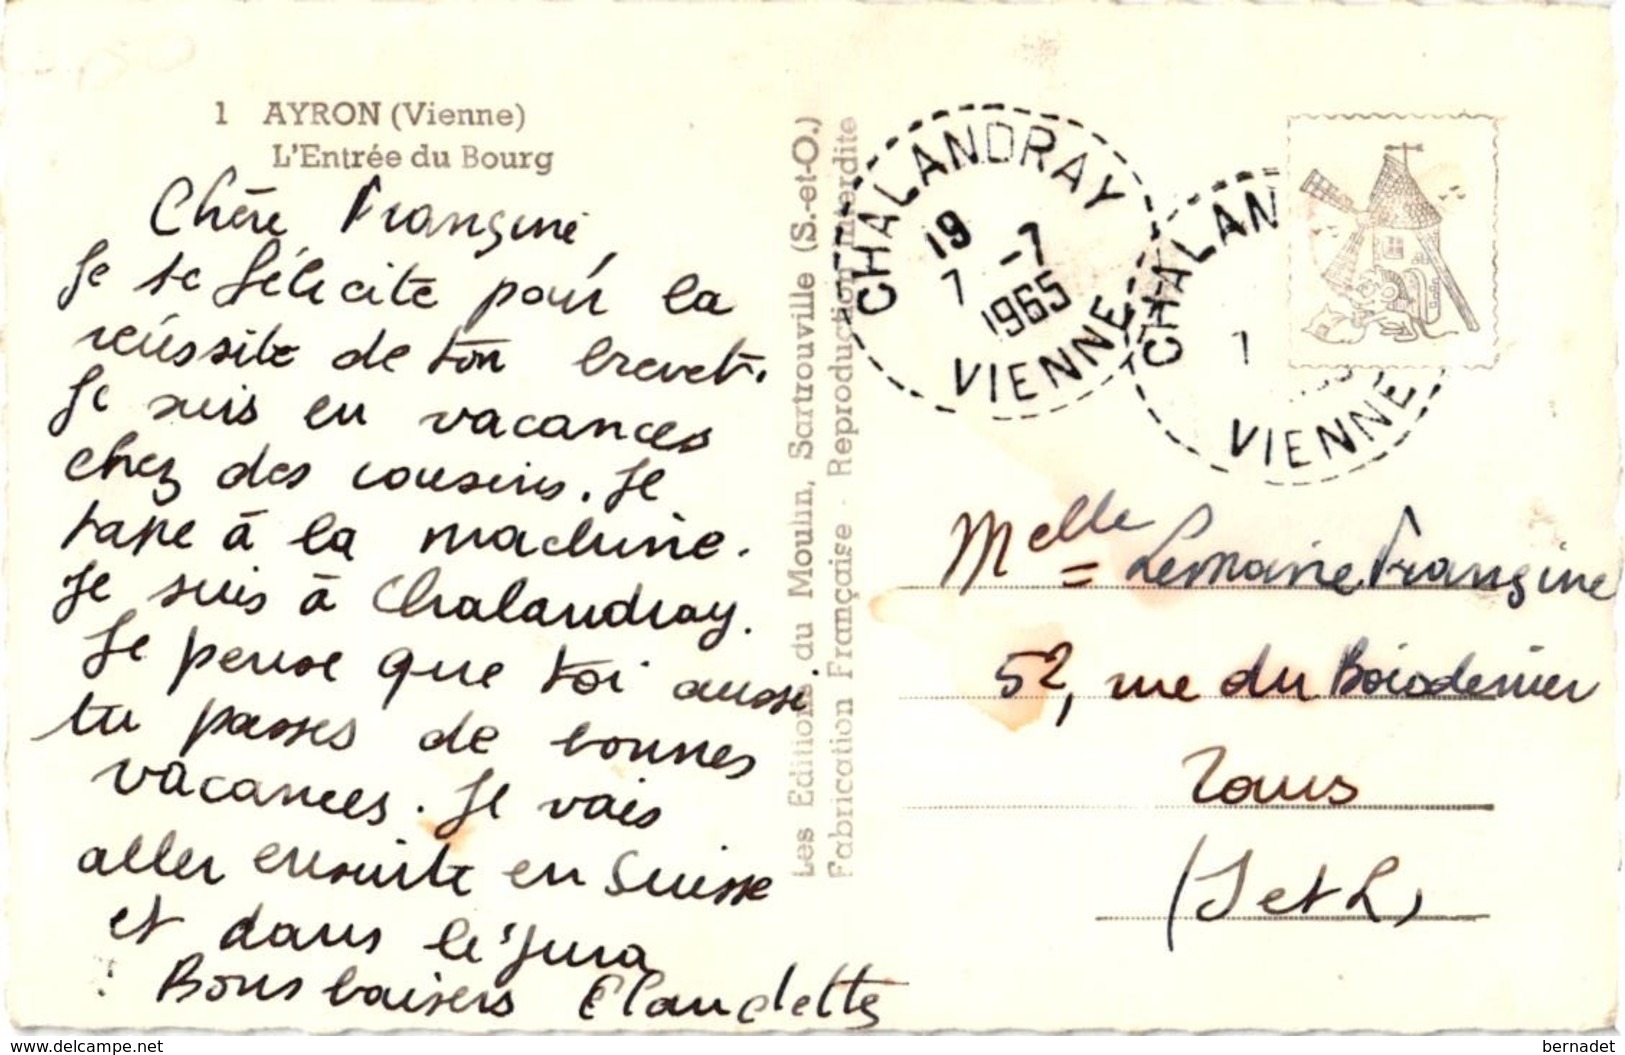 1 AYRON (Vienne)
L'Entrée du Bourg
Chère Frangine,
Je te félicite pour la
réussite de ton brevet.
Je suis en vacances
chez des cousins. Je
tape à la machine.
Je suis à Chalandray.
Je pense que toi aussi
tu passes de bonnes
vacances. Je vais
aller ensuite en Suisse
et dans le Jura
Bons baisers Claudette
Les Editions du Moulin, Sartrouville (S.-et-O.)
Fabrication Française - Reproduction interdite
CHALANDRAY
19 -7
7 1965
VIENNE
CHALAN
7
VIENNE
Melle Lemoine Frangine
52, rue du Boisdenier
Tours
(I et L)
www.delcampe.net
bernadet